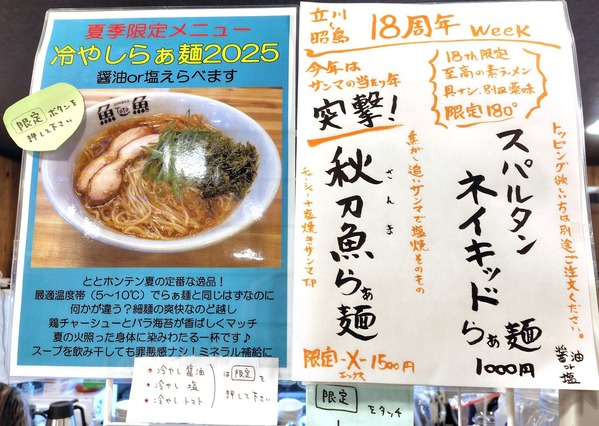 夏季限定メニュー
冷やしらぁ麺2025
醤油or塩えらべます
限定 ボタンを
押して下さい
魚魚
ととホンテン夏の定番な逸品！
最適温度帯（5～10℃）でらぁ麺と同じはずなのに
何かが違う？細麺の爽快なのど越し
鶏チャーシューとバラ海苔が香ばしくマッチ
夏の火照った身体に染みわたる一杯です♪
スープを飲み干しても罪悪感ナシ！ミネラル補給に
・冷やし醤油
・冷やし 塩
・冷やしトマト
は 限定 を
押して下さい
立川
昭島
18周年 week
今年は
サンマの当たり年
突撃！
18th限定
至高の素ラーメン
具ナシ、別皿薬味
限定180°
トッピング欲しい方は別途ご注文ください。
スパルタン
ネイキッド
らぁ麺
1000円
醤油
or
塩
焦がし追いサンマで塩焼そのもの
秋刀魚らぁ麺
さんま
チャーシュー＋塩焼きサンマT.P
限定-X-1500円
エックス
限定
をタッチ